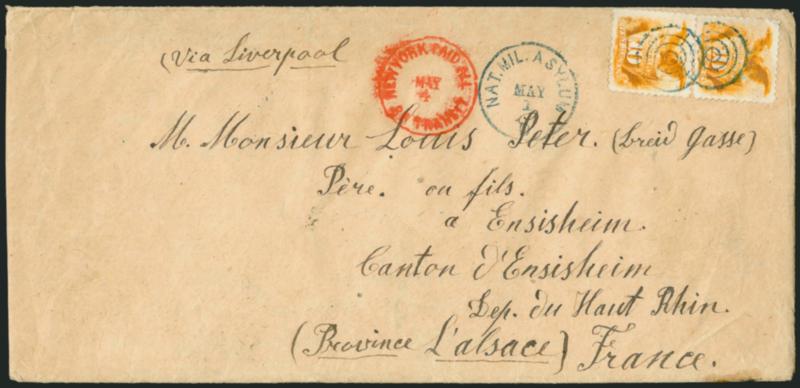 (Via Liverpool
NEW YORK PAID ALL
MAY
4
TRANSIT
NAT. MIL. ASYLUM
MAY
1
10
M. Monsieur Louis Peter. (breid Gasse)
Père. ou fils.
a Ensisheim.
Canton d'Ensisheim
Dep. du Haut Rhin.
(Province L'alsace) France.